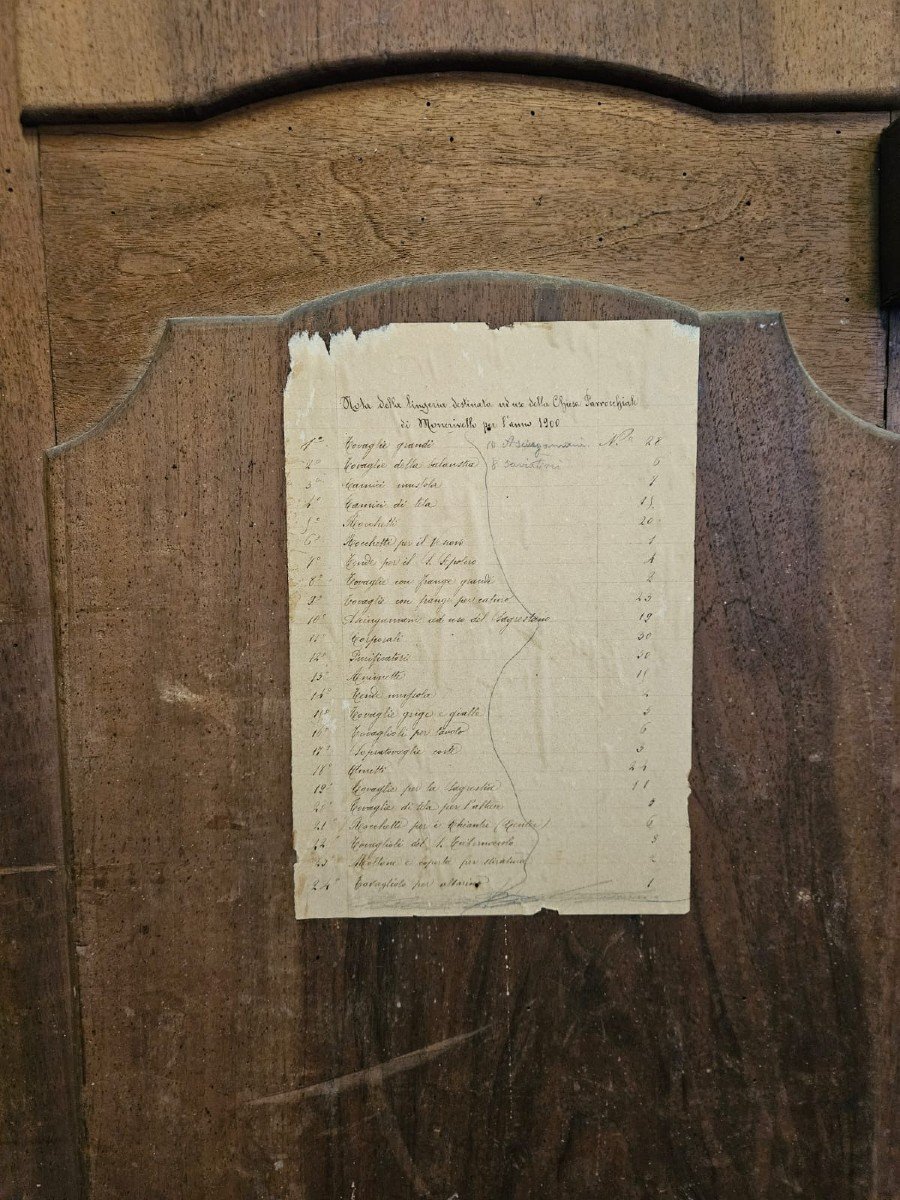 Nota della lingeria destinata ad uso della Chiesa Parrocchiale
di Moncrivello per l'anno 1900
1° Tovaglie grandi 10 Asciugamani N° 28
2° Tovaglie della balaustra 8 6
3° Camici mussola 7
4° Camici di tela 15
5° Rocchetti 20
6° Rocchetti per il 1
7° Tende per il S. Sepolcro 4
8° Tovaglie con frange grandi 2
9° Tovaglie con frange per catino 23
10° Asciugamani ad uso del Sagrestano 19
11° Corporali 30
12° Purificatori 50
13° Amitti 11
14° Tende mussola 2
15° Tovaglie grigie e gialle 3
16° Tovaglioli per tavolo 6
17° Sopratovaglie 3
18° 24
19° Tovaglie per la Sagrestia 11
20° Tovaglie di tela per l'altare
21° Rocchetti per i 6
22 Tovaglioli del S. 3
23° e coperte per stiratura 2
24° Tovagliolo per altarino 1